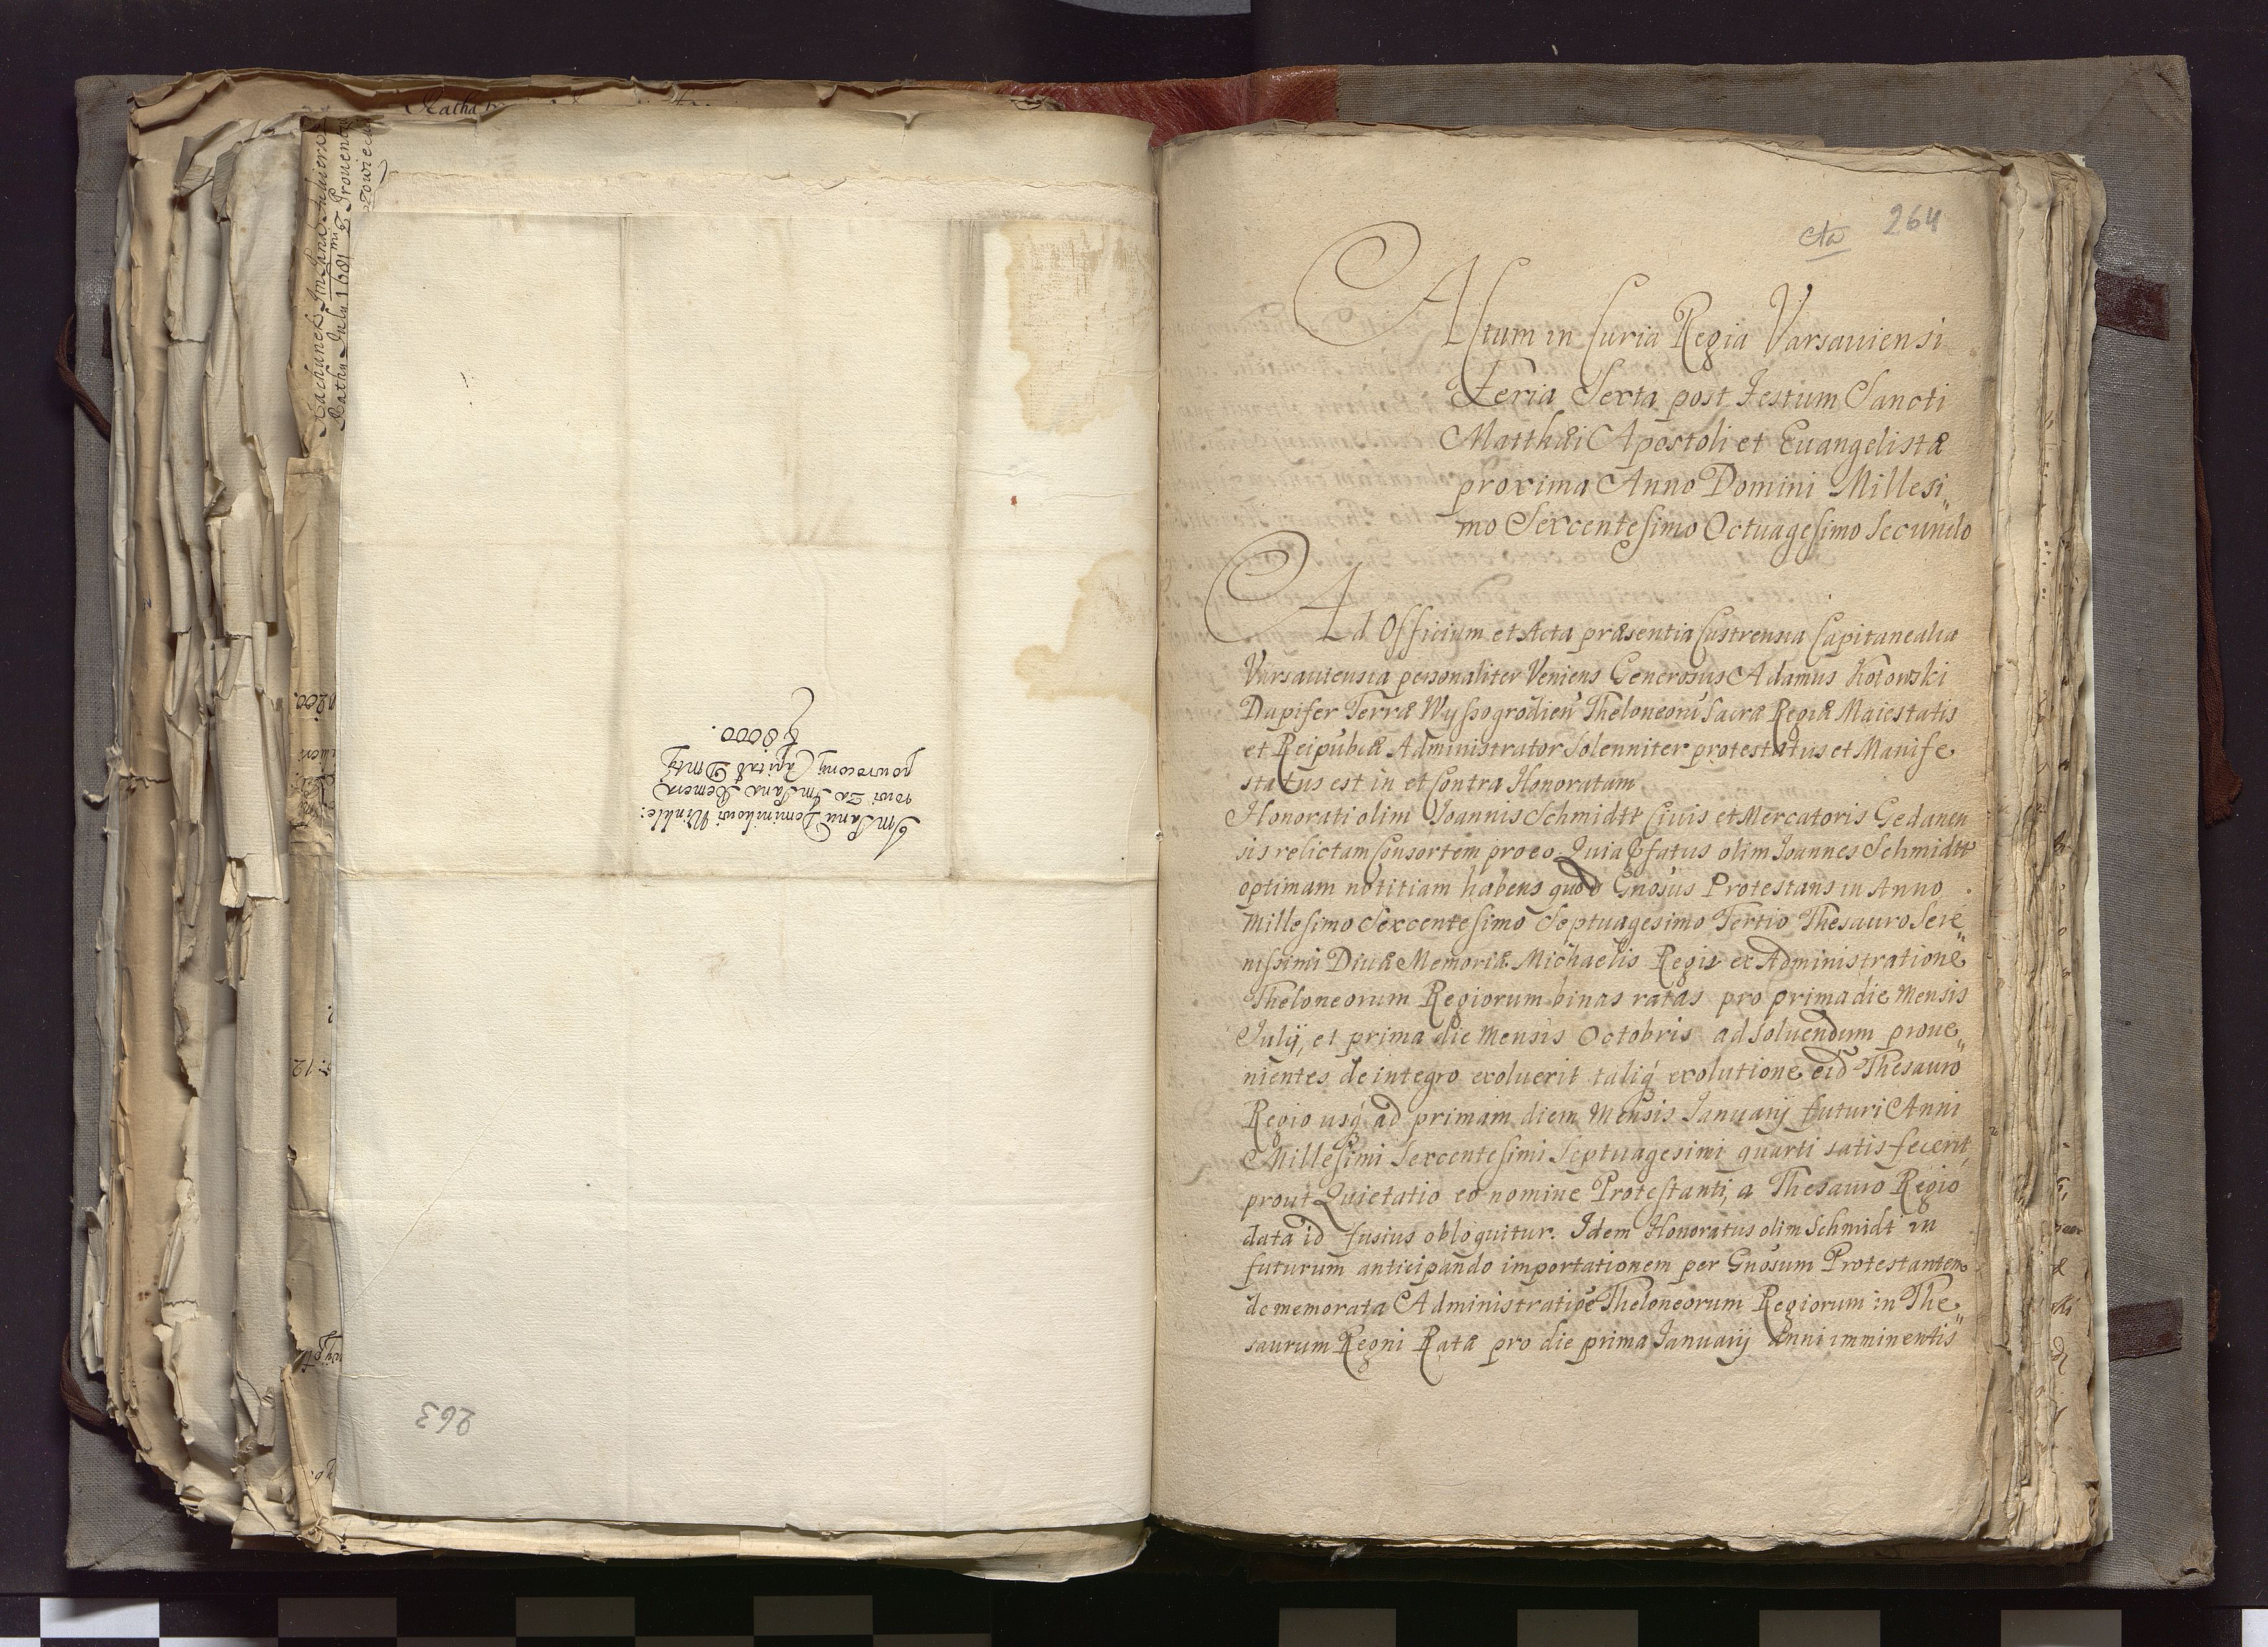 Im Panu Dominikowi Winkle:
rowi za Im Pana Remera
powrocony Capitał
8000.
263
264
Actum in Curia Regia Varsauiensi
Feria Sexta post Festum Sancti
Matthæi Apostoli et Euangelistæ
proxima Anno Domini Millesi„
mo Sexcentesimo Octuagesimo Secundo
Ad Officium et Acta præsentia Castrensia Capitanealia
Varsauiensia personaliter Veniens Generosus Adamus Kotowski
Dapifer Terræ Wyssogrodien̄ Theloneorū Sacræ Regiæ Maiestatis
et Reipub̄cæ Administrator Solenniter protestatus et Manife
status est in et Contra Honoratam
Honorati olim Joannis Schmidtt Ciuis et Mercatoris Gedanen
sis relictam Consortem pro eo. Quia Pfatus olim Joannes Schmidtt
optimam notitiam habens quod Gnosus Protestans in Anno
Millesimo Sexcentesimo Septuagesimo Tertio Thesauro Sere„
nissimi Diuæ Memoriæ Michaelis Regis ex Administratione
Theloneorum Regiorum binas ratas pro prima die Mensis
Julij, et prima die Mensis Octobris ad soluendum proue„
nientes de integro exoluerit taliq́ exolutione eid̄ Thesauro
Regio usq́ ad primam diem Mensis Januarij futuri Anni
Millesimi Sexcentesimi Septuagesimi quarti satisfecerit,
prout Quietatio eo nomine Protestanti, a Thesauro Regio
data id fusius obloquitur. Idem Honoratus olim Schmidt in
futurum anticipando importationem per Gnosum Protestantem
de memorata Administratioē Theloneorum Regiorum in The„
saurum Regni Ratæ pro die prima Januarij Anni imminentis